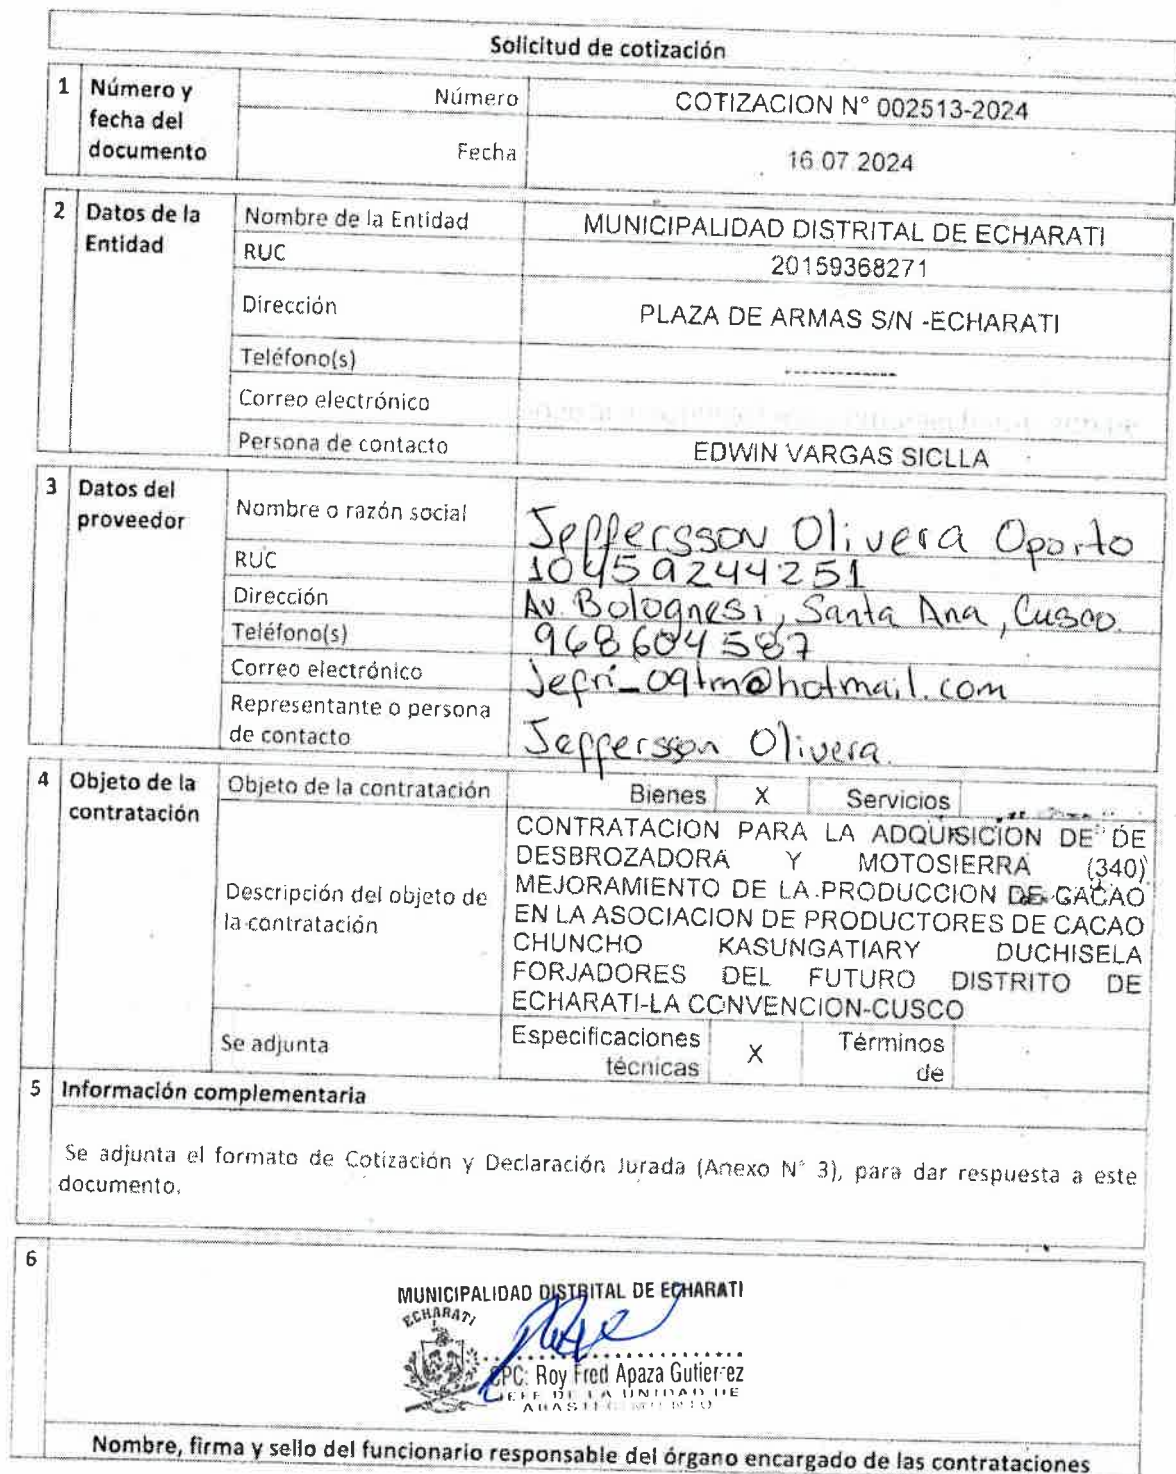 Solicitud de cotización
1 Número y fecha del documento
Número COTIZACION N° 002513-2024
Fecha 16 07 2024
2 Datos de la Entidad
Nombre de la Entidad MUNICIPALIDAD DISTRITAL DE ECHARATI
RUC 20159368271
Dirección PLAZA DE ARMAS S/N -ECHARATI
Teléfono(s) -------------
Correo electrónico
Persona de contacto EDWIN VARGAS SICLLA
3 Datos del proveedor
Nombre o razón social Jeffersson Olivera Oporto
RUC 10459244251
Dirección Av. Bolognesi, Santa Ana, Cusco.
Teléfono(s) 968604587
Correo electrónico Jefri_09tm@hotmail.com
Representante o persona de contacto Jeffersson Olivera.
4 Objeto de la contratación
Objeto de la contratación Bienes X Servicios
Descripción del objeto de la contratación
CONTRATACION PARA LA ADQUISICION DE DE
DESBROZADORA Y MOTOSIERRA (340)
MEJORAMIENTO DE LA PRODUCCION DE CACAO
EN LA ASOCIACION DE PRODUCTORES DE CACAO
CHUNCHO KASUNGATIARY DUCHISELA
FORJADORES DEL FUTURO DISTRITO DE
ECHARATI-LA CONVENCION-CUSCO
Se adjunta Especificaciones técnicas X Términos de
5 Información complementaria
Se adjunta el formato de Cotización y Declaración Jurada (Anexo N° 3), para dar respuesta a este
documento.
6
MUNICIPALIDAD DISTRITAL DE ECHARATI
ECHARATI
CPC: Roy Fred Apaza Gutierrez
JEFE DE LA UNIDAD DE
ABASTECIMIENTO
Nombre, firma y sello del funcionario responsable del órgano encargado de las contrataciones